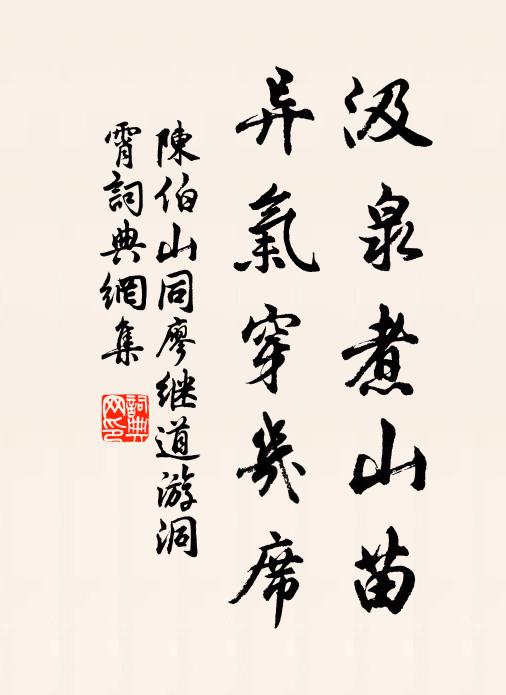 汲泉煮山苗
异氣穿幾席
陳伯山同廖继道游洞
霄詞典網集
詞典
网印